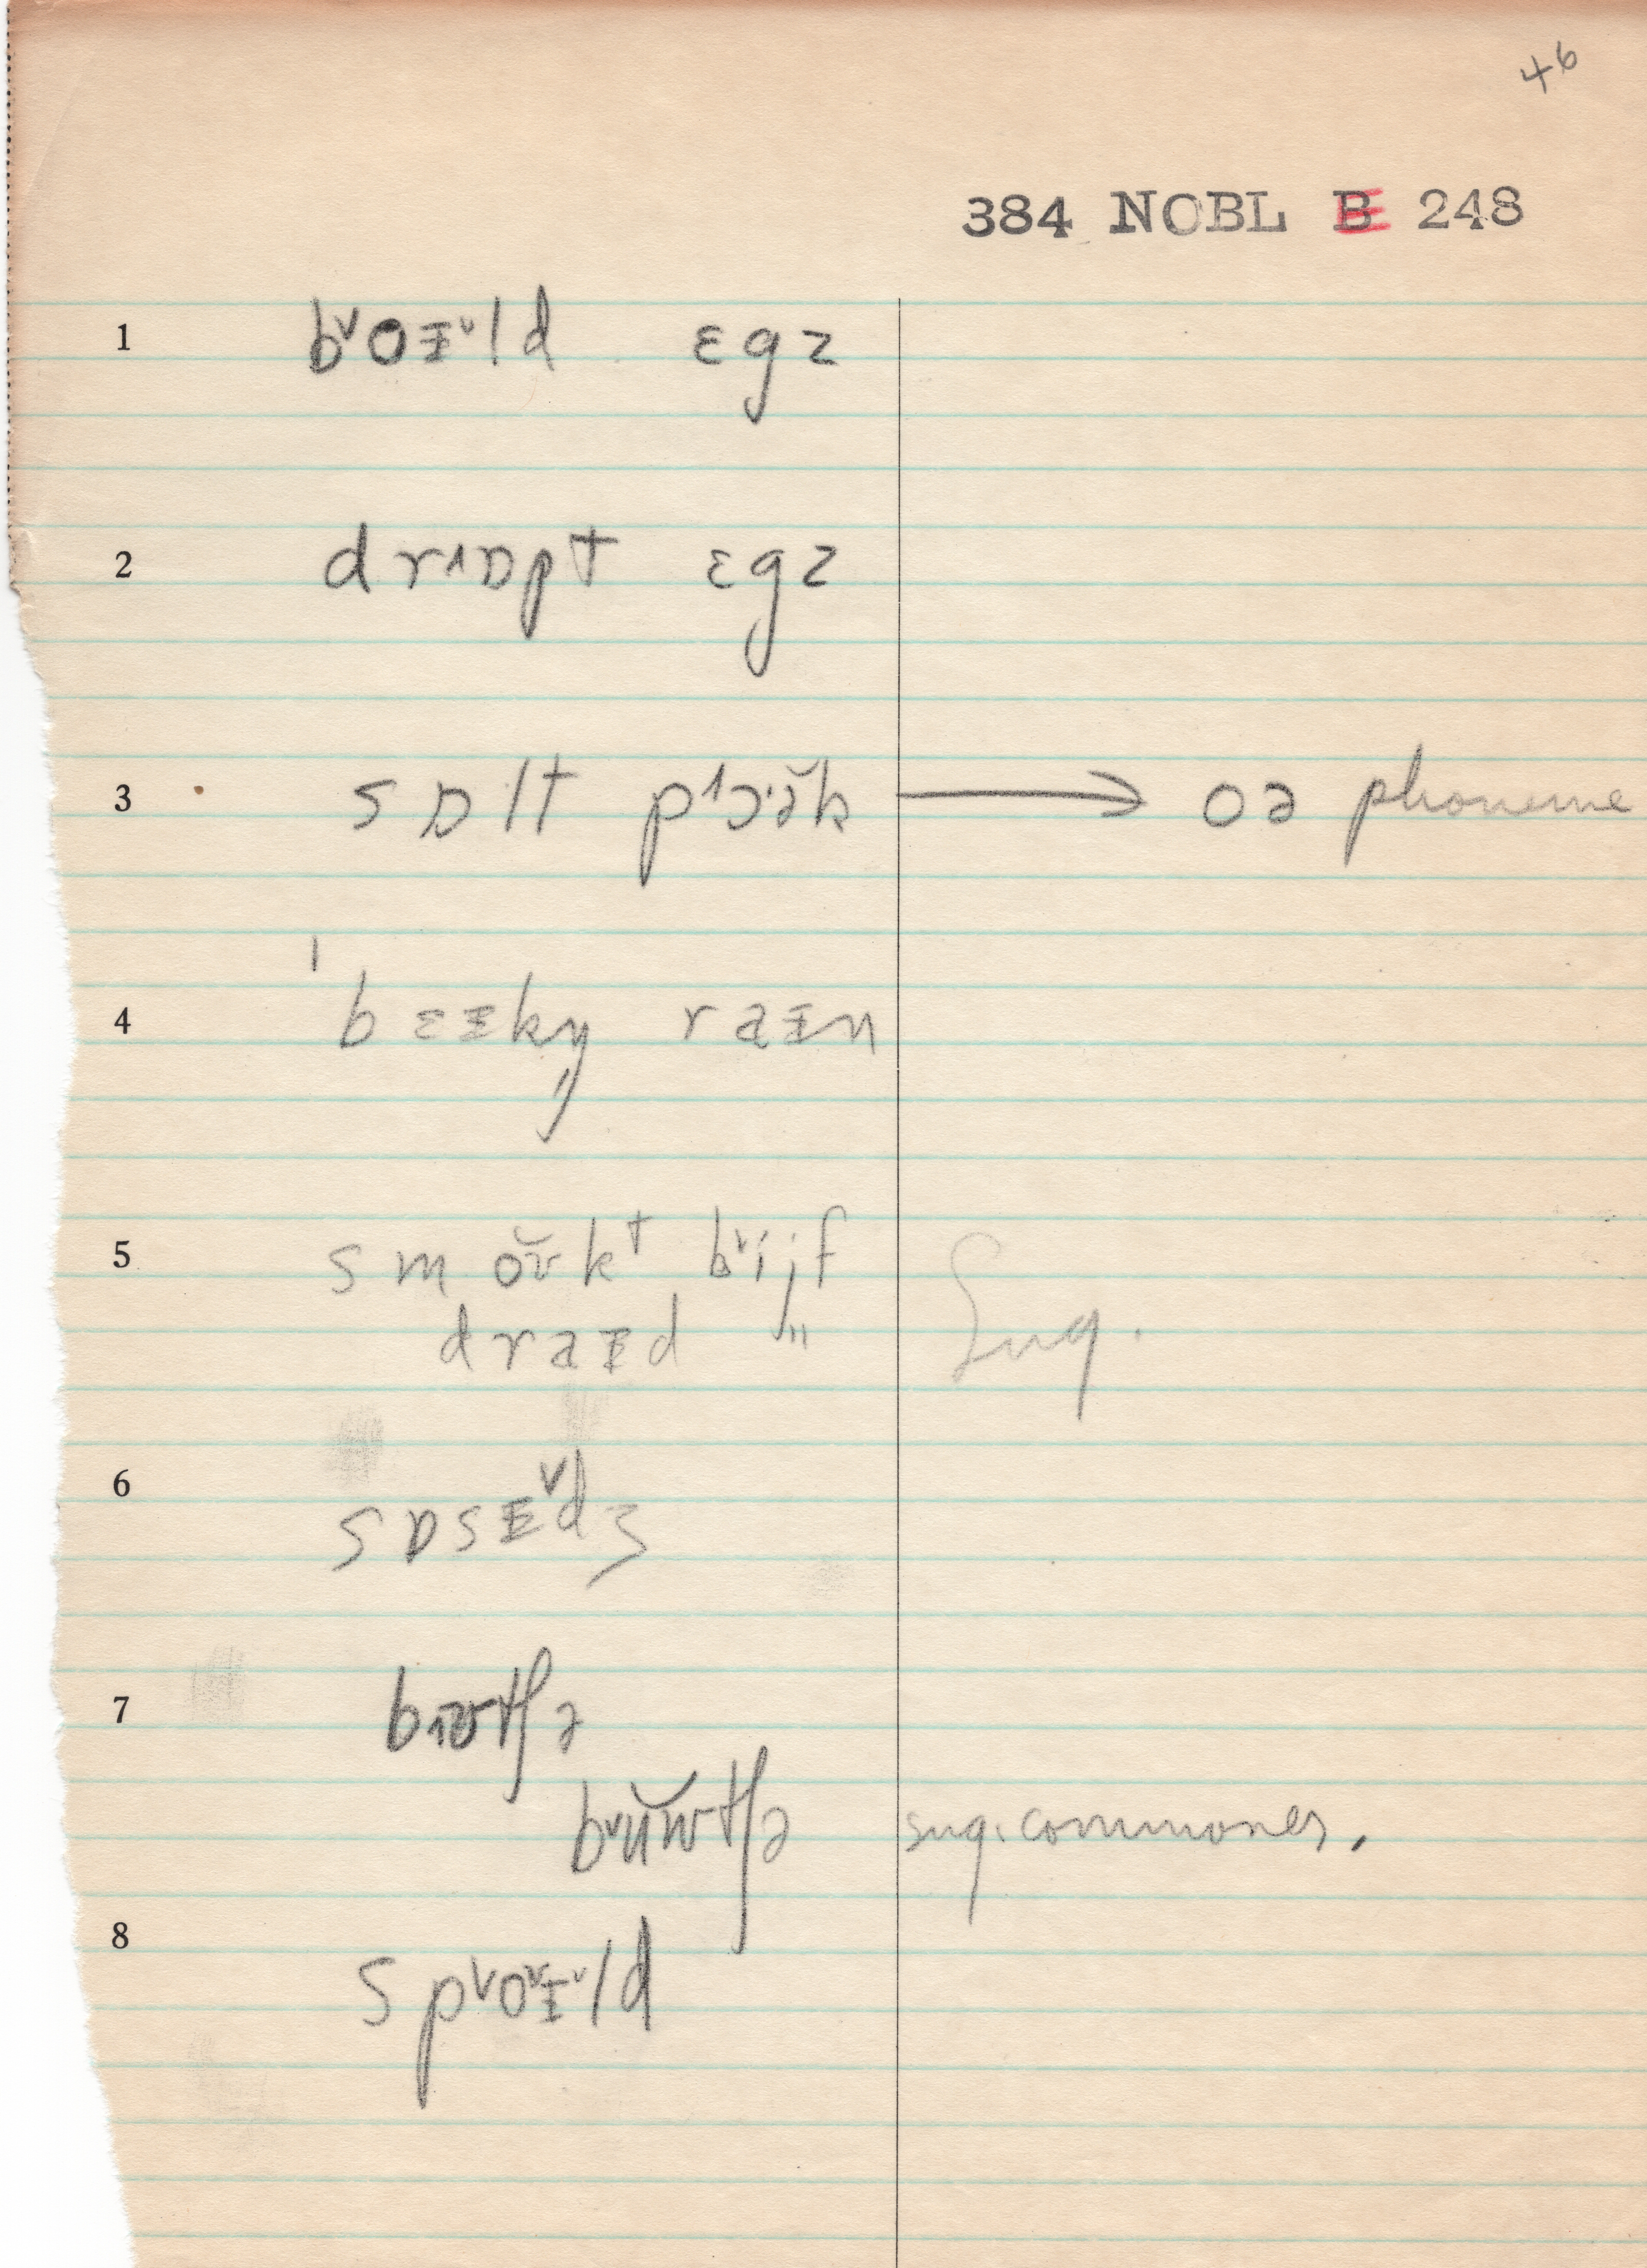 46
384 NOBL B 248
1 b˅oɪ˅ld ɛgz
2 dr˄ɒpt ɛgz
3 sɒlt p˄ɔ·ə̆k → oə phoneme
4 ˈbɛɪkŋ̩ raɪn
5 smŏʊkt b˅ijf Sug.
draɪd "
6 sɒsɪ˅dʒ
7 b˄ʊtʃə
b˅ŭwtʃə sug. commoner.
8 sp˅o˅ɪ˅ld